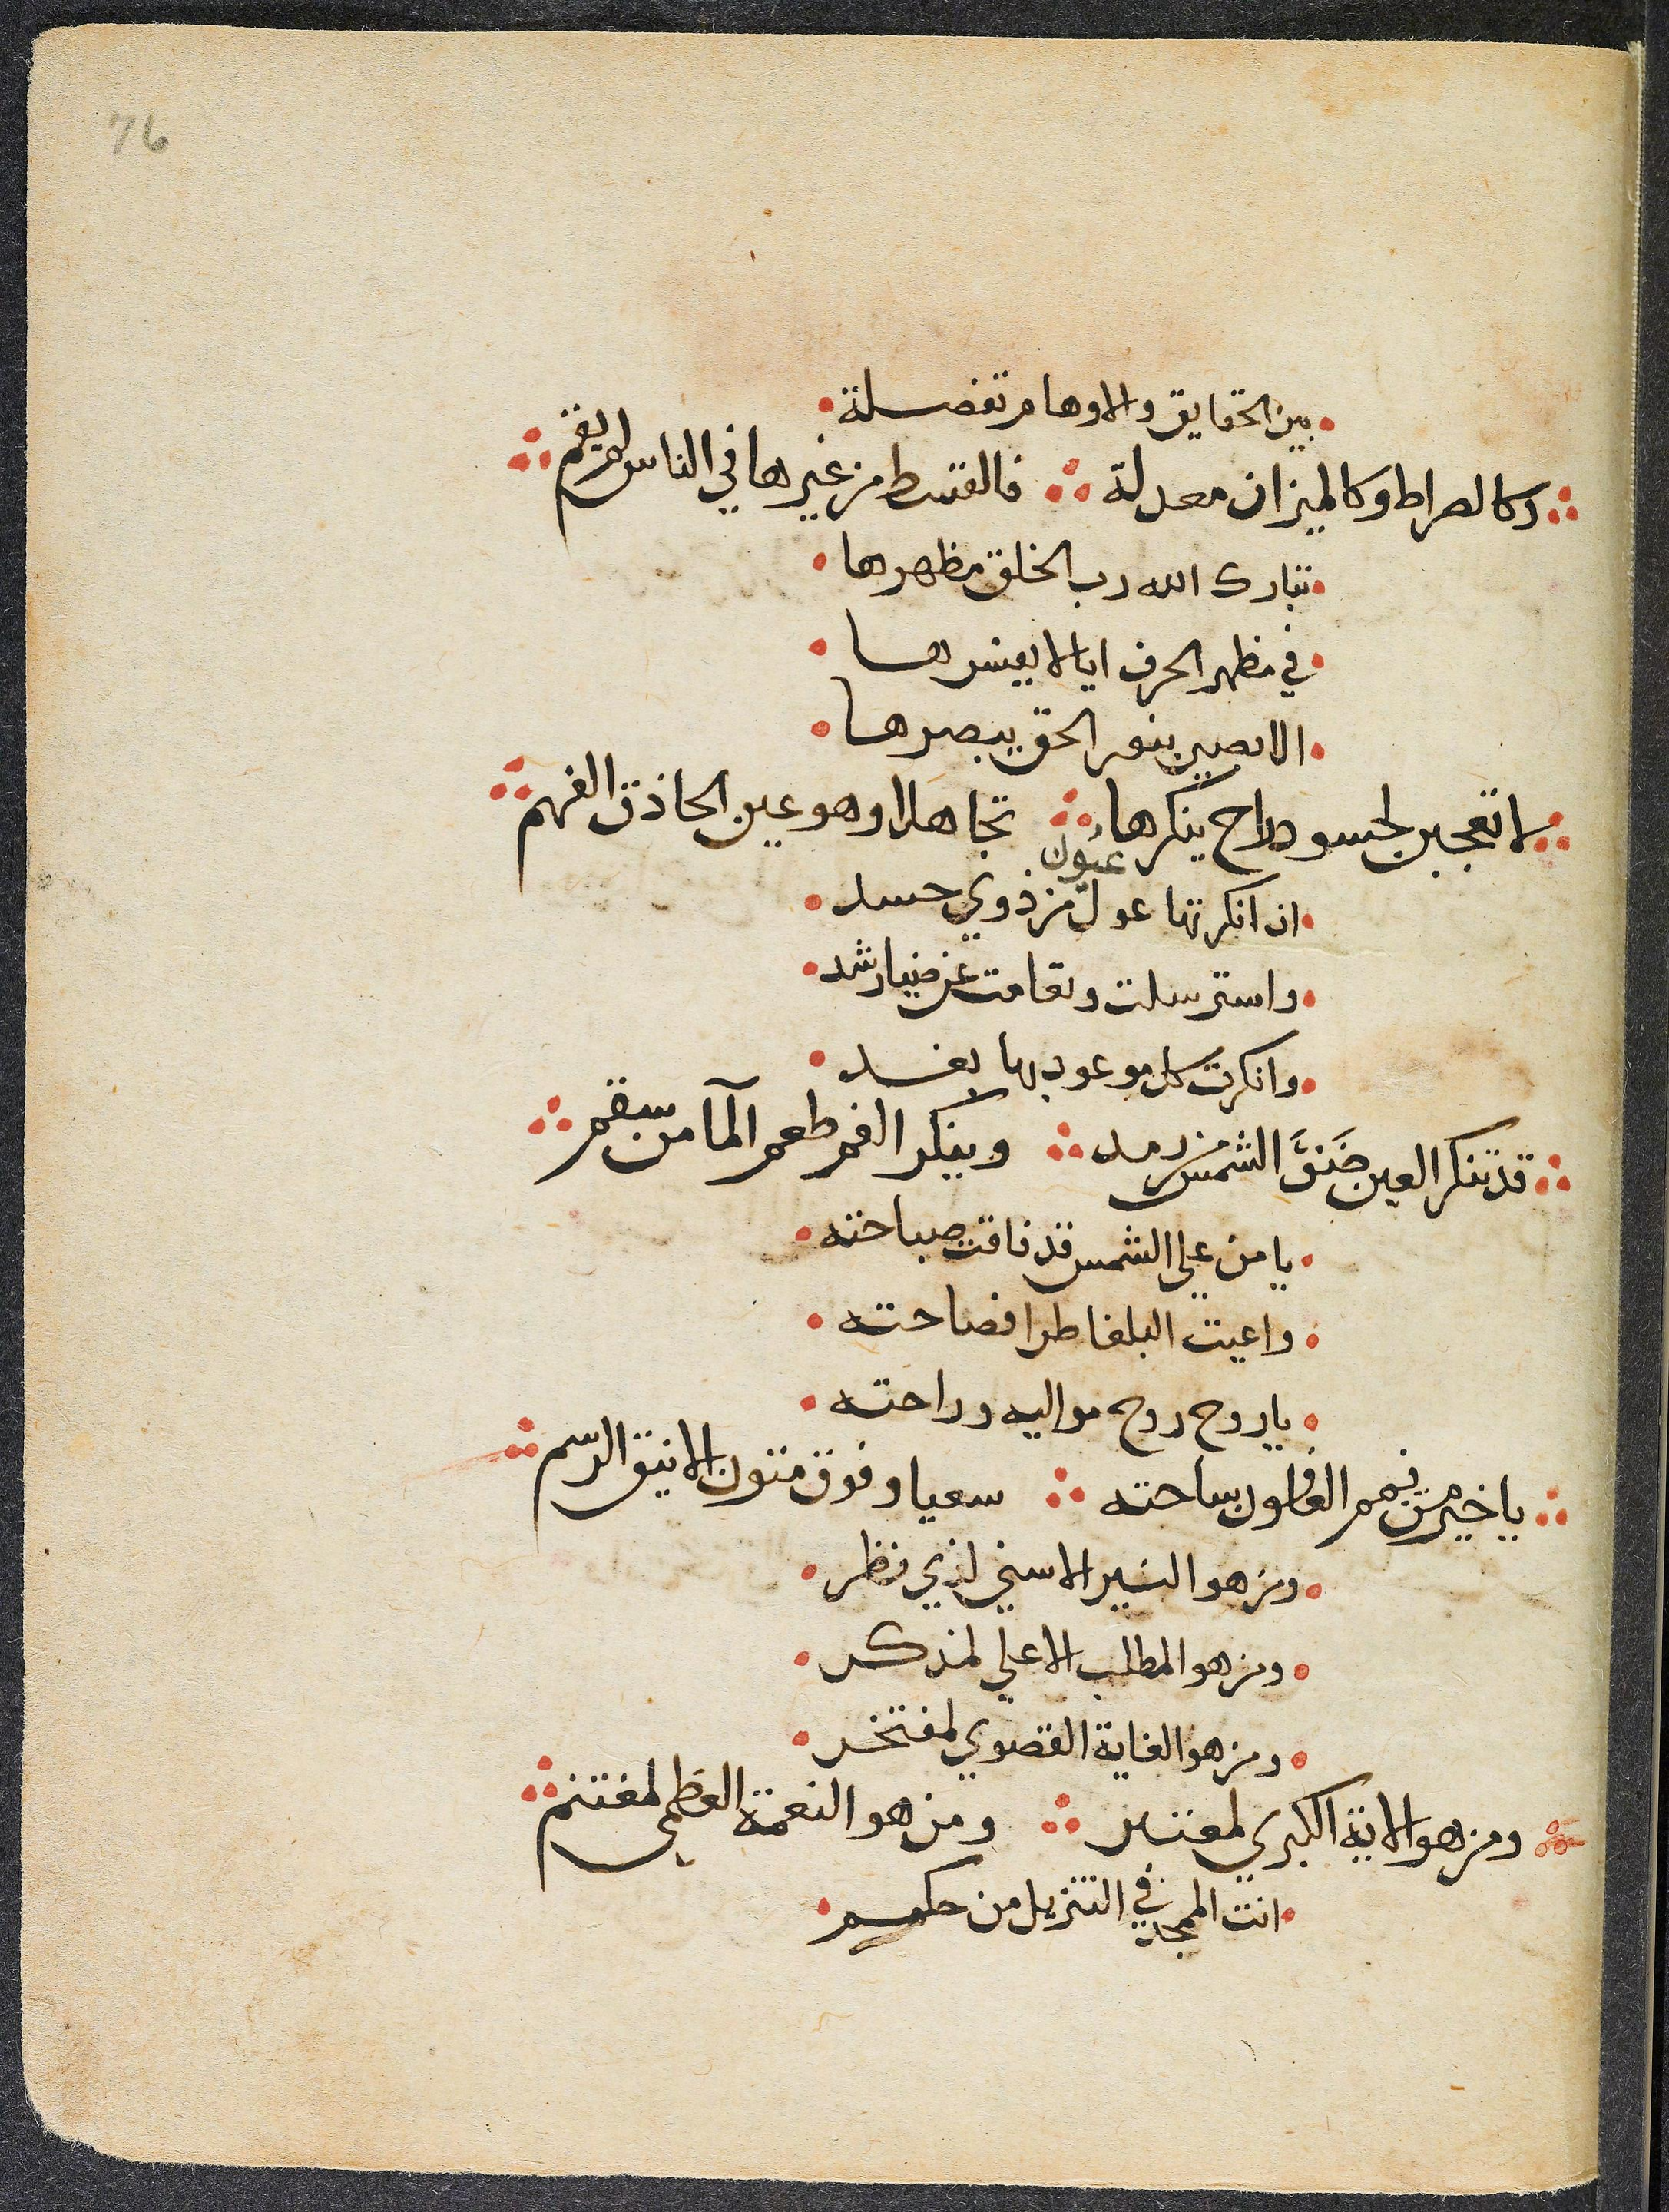 76
بين الحقايق والاوهام تفضلة
وكالصراط وكالميزان معدلة فالقسط من غيرها في الناس لم يقم
تبارك الله رب الخلق مظهرها
في مظهر الحرف ايا لا يفسرها
الا بصير بنور الحق يبصرها
لا تعجبن لحسود راح ينكرها تجاهلا وهو عين الحاذق الفهم
عيون
ان انكرتها عول من ذوي حسد
واسترسلت وتعامت عن ضيا رشد
وانكرت كل موعود بها بغد
قد تنكر العين ضَوَّ الشمس من رمد وينكر الفم طعم المآ من سقم
يا من علي الشمس قد فاقت صباحته
واعيت البلغا طرا فصاحته
يا روح روح مواليه وراحته
يا خير من يمم العافون ساحته سعيا وفوق متون الاينق الرسم
ومن هو النير الاسني لذي نظر
ومن هو المطلب الاعلي لمذكر
ومن هو الغاية القصوي لمفتخر
ومن هو الاية الكبري لمعتبر ومن هو النعمة العظمي لمغتنم
انت الممجد في التنزيل من حكم